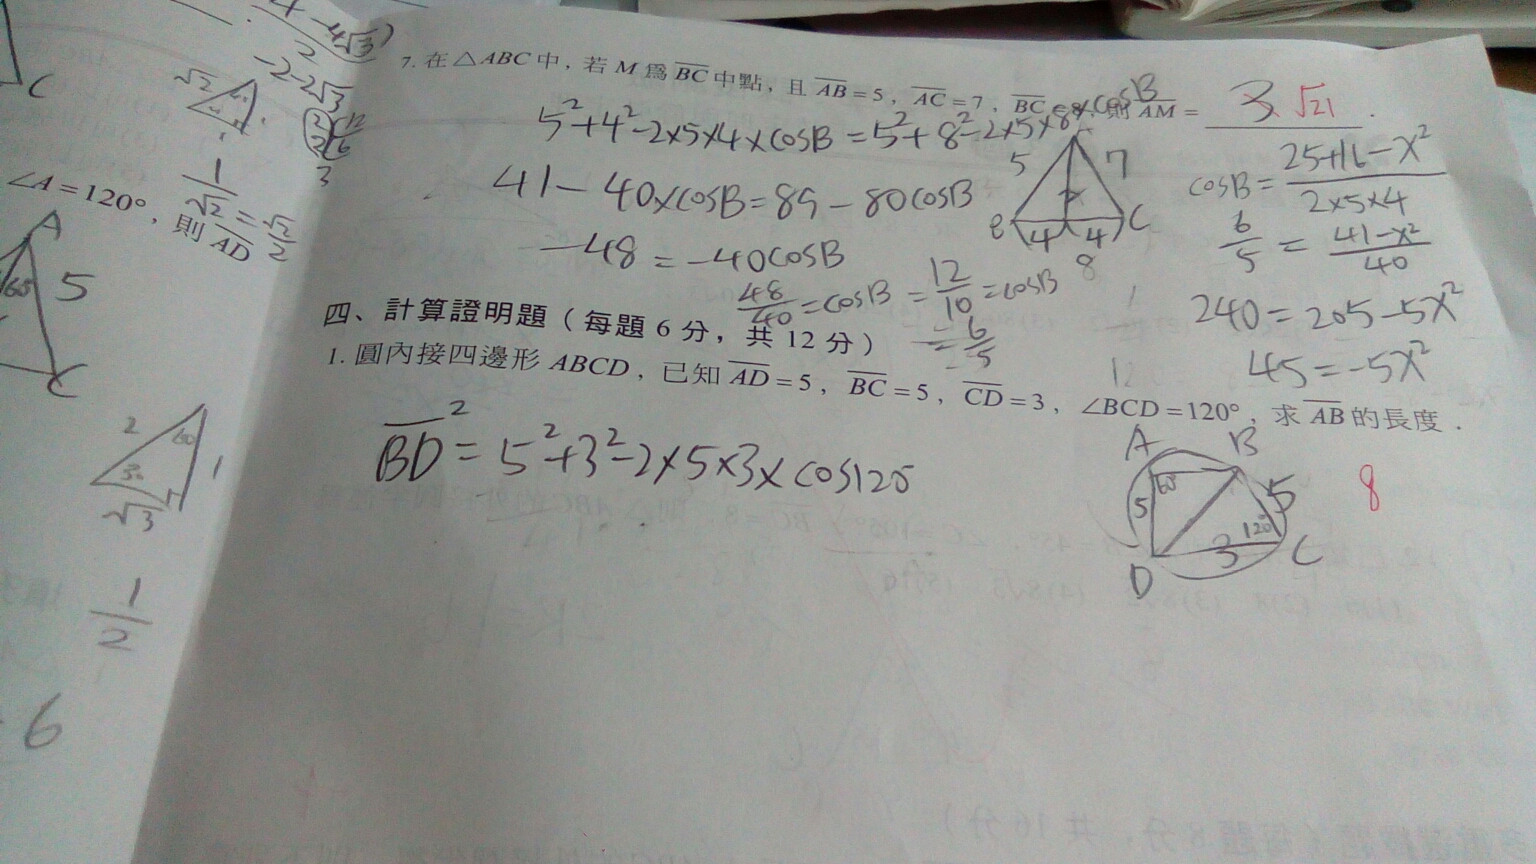 4-4√3)
2
-2-2√3
3
C
√2
1
1/√2 = √2/2
∠A=120°, 則 AD
A
60
5
C
2
60
30
1
√3
1/2
6
7. 在△ABC中, 若 M 為 BC 中點, 且 AB=5, AC=7, BC=8, 則 AM= 3 √21 .
5²+4²-2×5×4×cosB=5²+8²-2×5×8×cosB
41-40×cosB=89-80cosB
-48=-40cosB
48/40=cosB=12/10=cosB
=6/5
5
7
B
4
4
C
8
cosB=(25+16-x²)/(2×5×4)
6/5=(41-x²)/40
240=205-5x²
45=-5x²
四、計算證明題(每題 6 分, 共 12 分)
1. 圓內接四邊形 ABCD, 已知 AD=5, BC=5, CD=3, ∠BCD=120°, 求 AB 的長度.
BD²=5²+3²-2×5×3×cos120
A
B
60
5
5
120°
3
C
D
8